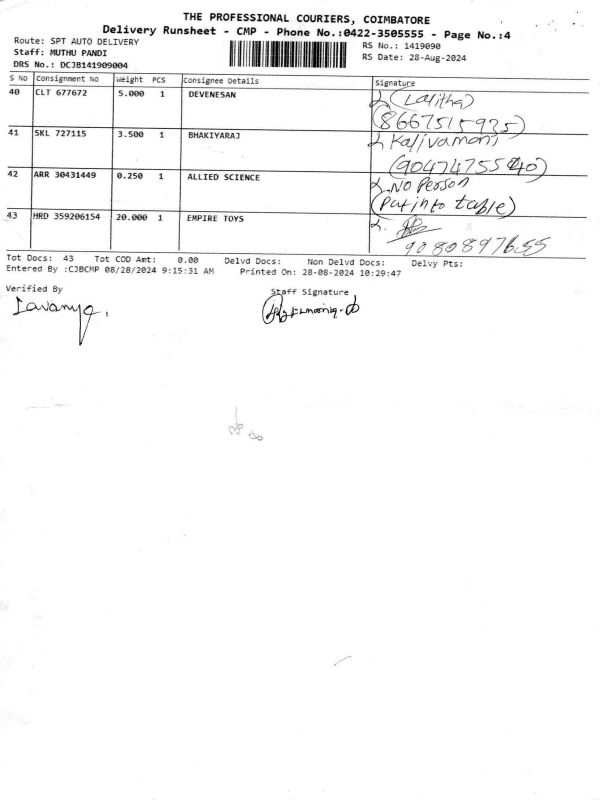 THE PROFESSIONAL COURIERS, COIMBATORE
Delivery Runsheet - CMP - Phone No.:0422-3505555 - Page No.:4
Route: SPT AUTO DELIVERY
RS No.: 1419090
Staff: MUTHU PANDI
RS Date: 28-Aug-2024
DRS No.: DCJB141909004
S No Consignment No Weight PCS Consignee Details Signature
40 CLT 677672 5.000 1 DEVENESAN (Lalitha)
(8667515925)
41 SKL 727115 3.500 1 BHAKIYARAJ Kalivamani
(9047475540)
42 ARR 30431449 0.250 1 ALLIED SCIENCE No Person
(Put into table)
43 HRD 359206154 20.000 1 EMPIRE TOYS
9080897655
Tot Docs: 43 Tot COD Amt: 0.00 Delvd Docs: Non Delvd Docs: Delvy Pts:
Entered By :CJBCMP 08/28/2024 9:15:31 AM Printed On: 28-08-2024 10:29:47
Verified By Staff Signature
Lavanya.